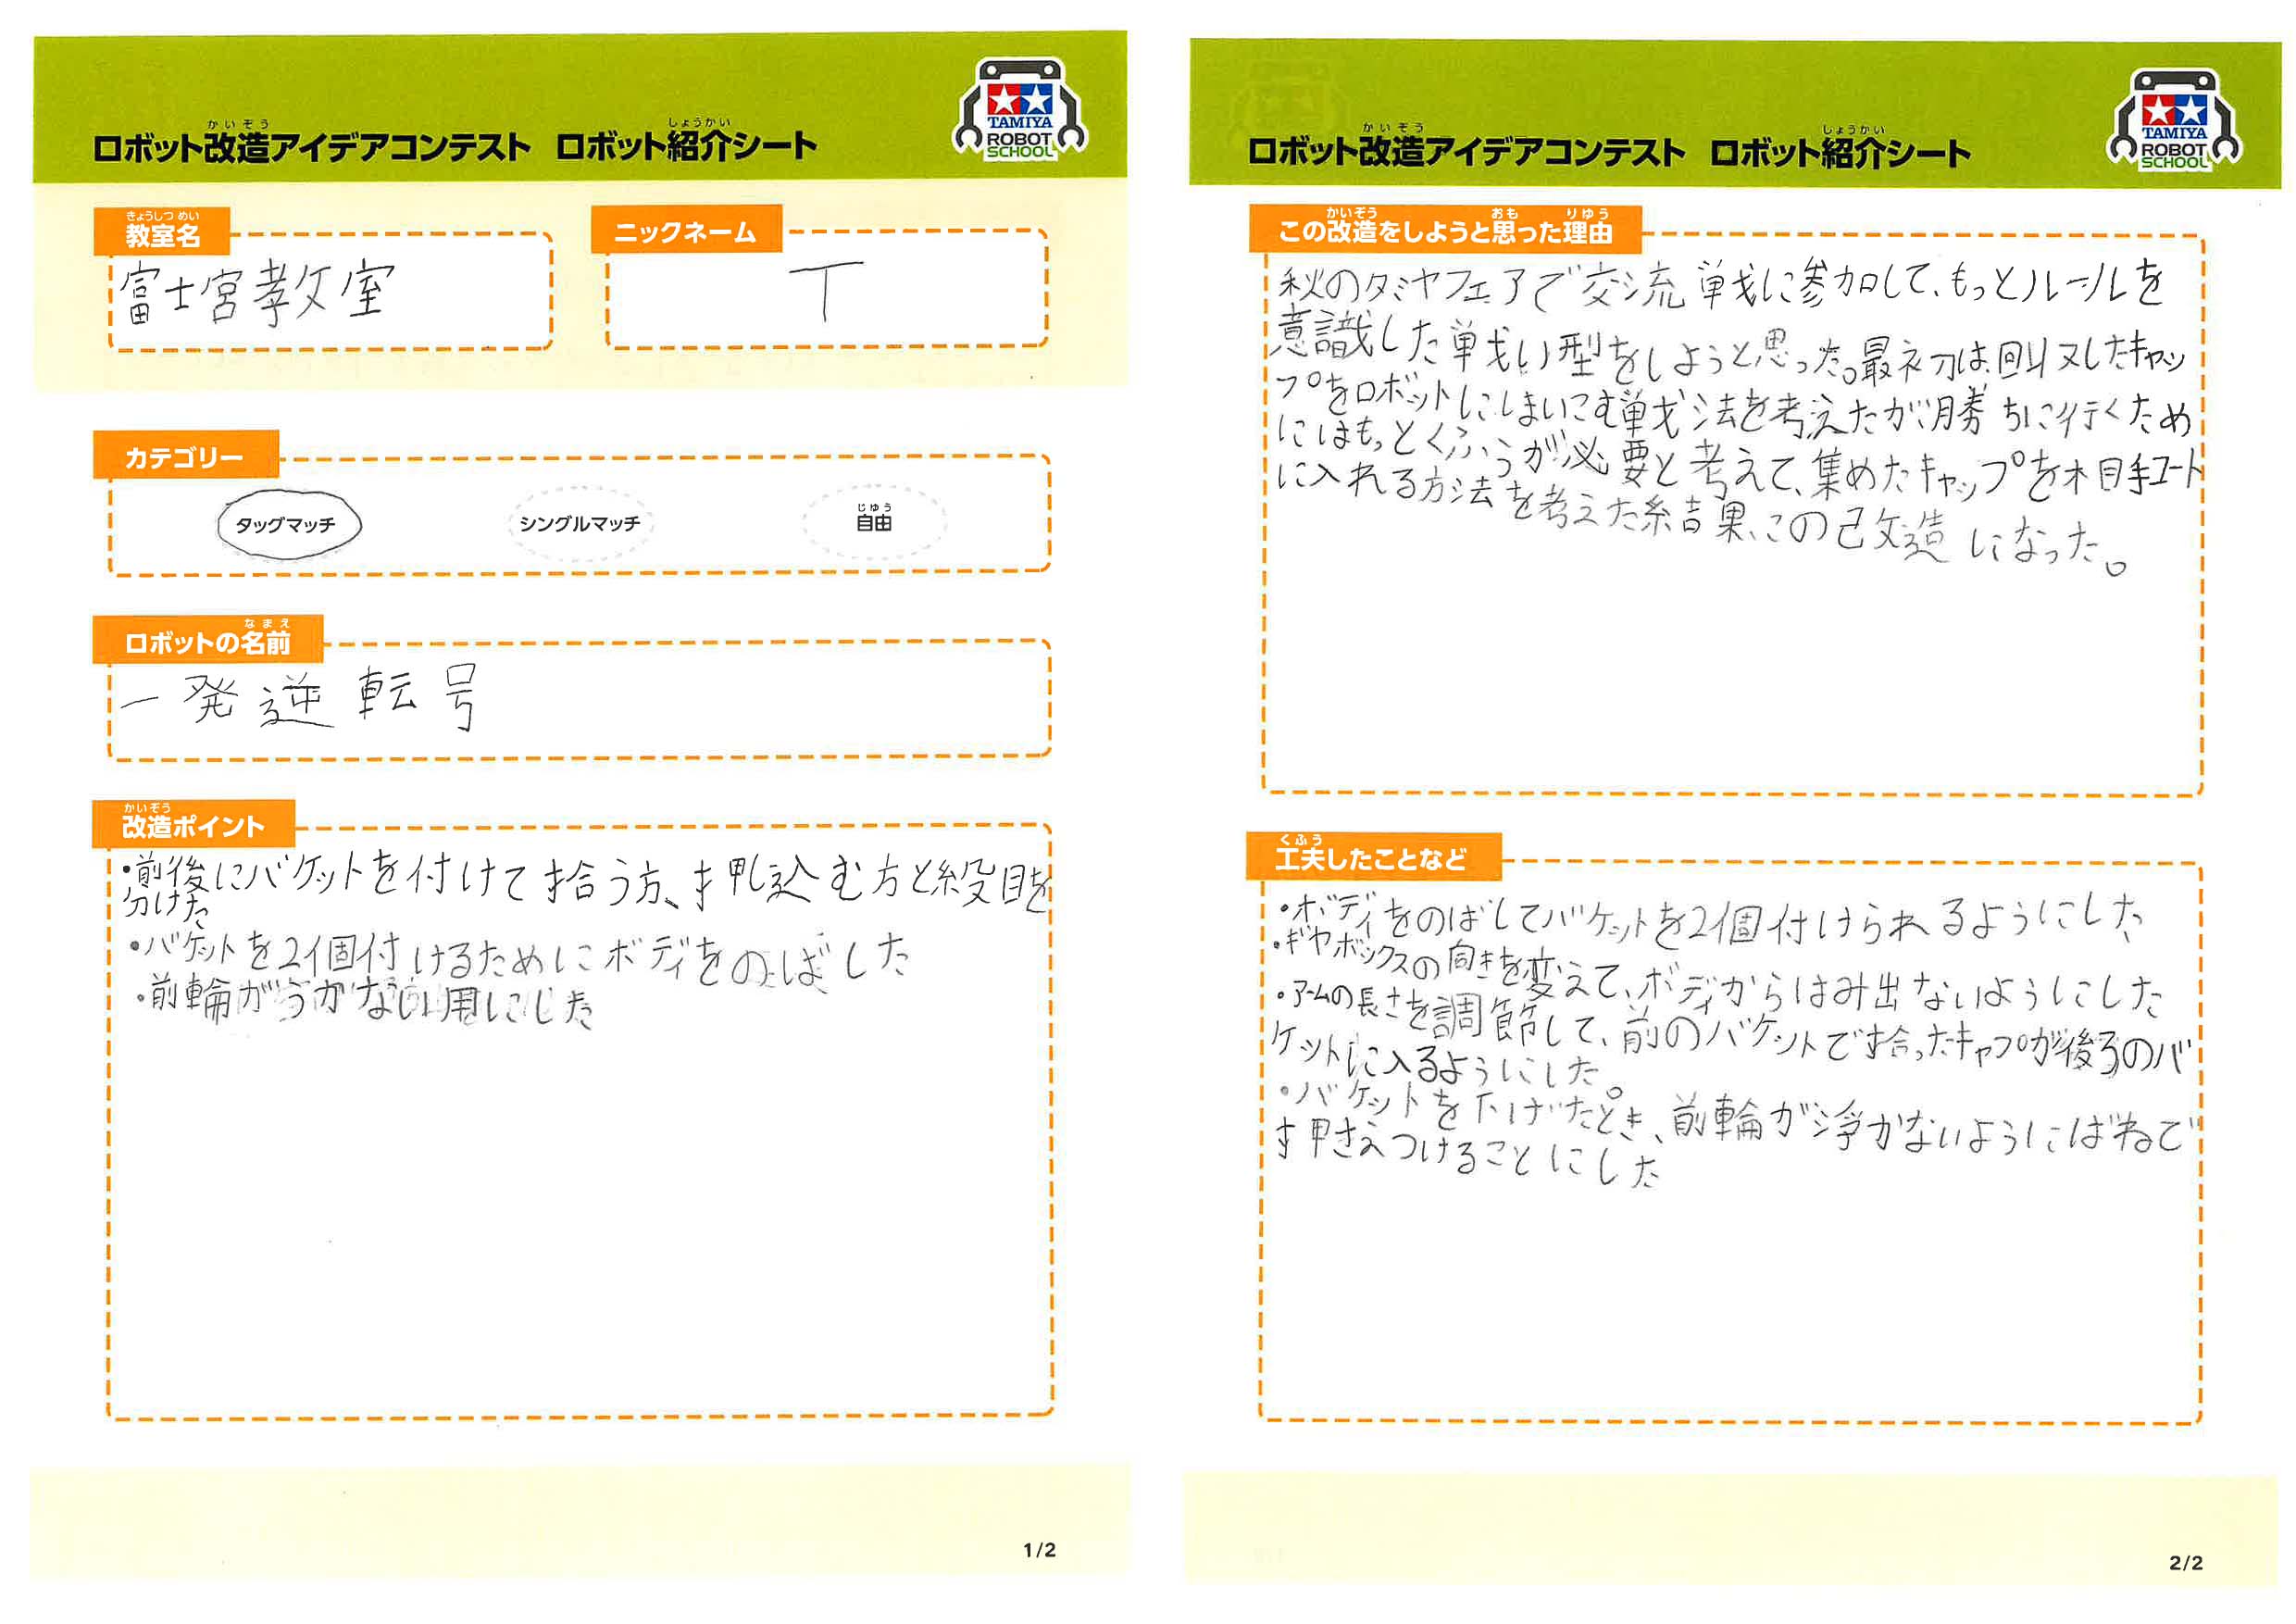 かいぞう しょうかい
ロボット改造アイデアコンテスト ロボット紹介シート
TAMIYA
ROBOT
SCHOOL
きょうしつ めい
教室名
富士宮教室
ニックネーム
T
カテゴリー
タッグマッチ
シングルマッチ
じゆう
自由
なまえ
ロボットの名前
一発逆転号
かいぞう
改造ポイント
・前後にバケットを付けて拾う方、押し込む方と役目を
分けた
・バケットを2個付けるためにボディをのばした
・前輪がうかない用にした
1/2
かいぞう しょうかい
ロボット改造アイデアコンテスト ロボット紹介シート
TAMIYA
ROBOT
SCHOOL
かいぞう おも りゆう
この改造をしようと思った理由
秋のタミヤフェアで交流戦に参加して、もっとルールを
意識した戦い型をしようと思った。最初は回収したキャッ
プをロボットにしまいこむ戦法を考えたが勝ちに行くため
にはもっとくふうが必要と考えて、集めたキャップを相手コート
に入れる方法を考えた結果、この改造になった。
くふう
工夫したことなど
・ボディをのばしてバケットを2個付けられるようにした
・ギヤボックスの向きを変えて、ボディからはみ出ないようにした
・アームの長さを調節して、前のバケットで拾ったキャップが後ろのバ
ケットに入るようにした。
・バケットを下げたとき、前輪が浮かないようにばねで
押さえつけることにした
2/2